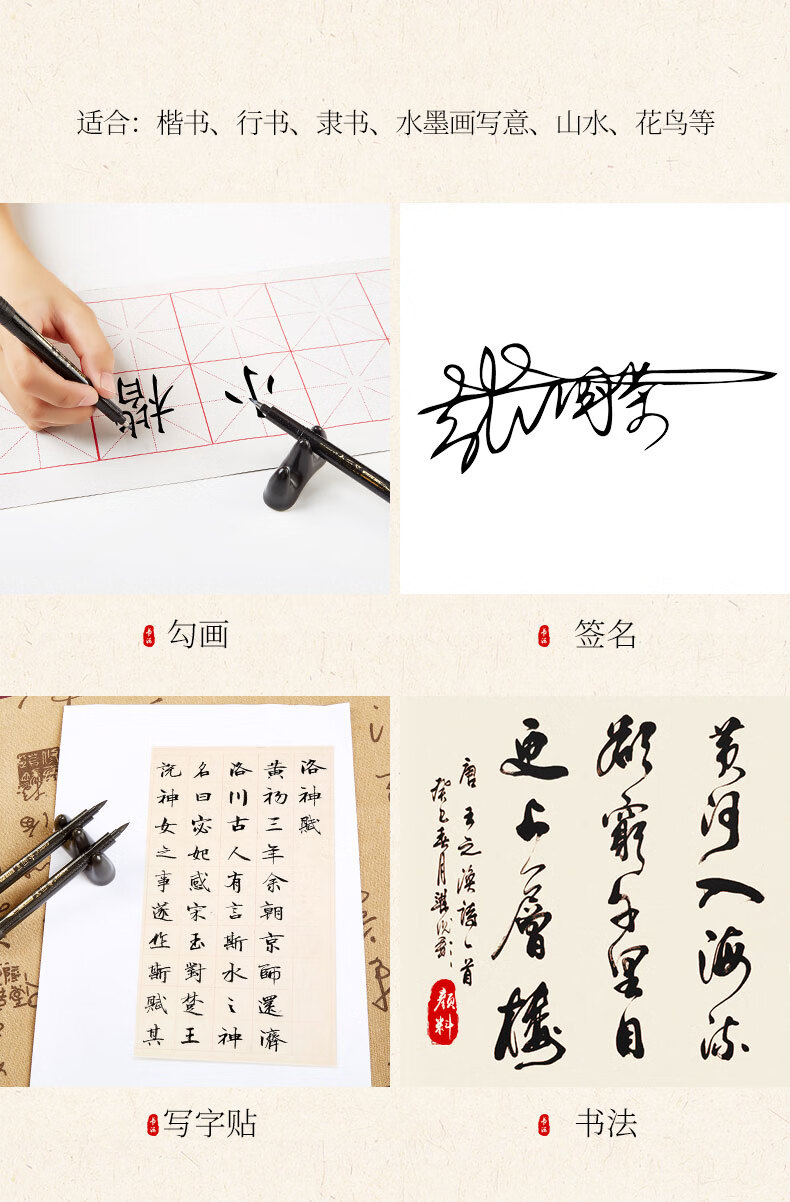 适合：楷书、行书、隶书、水墨画写意、山水、花鸟等
小
楷
书法 勾画
书法 签名
洛神赋
黄初三年余朝京師還濟
洛川古人有言斯水之神
名曰宓妃感宋玉對楚王
説神女之事遂作斯賦其
黄河入海流
欲窮千里目
更上一層樓
唐王之渙詩一首
癸巳春月
顏料
书法 写字贴
书法 书法